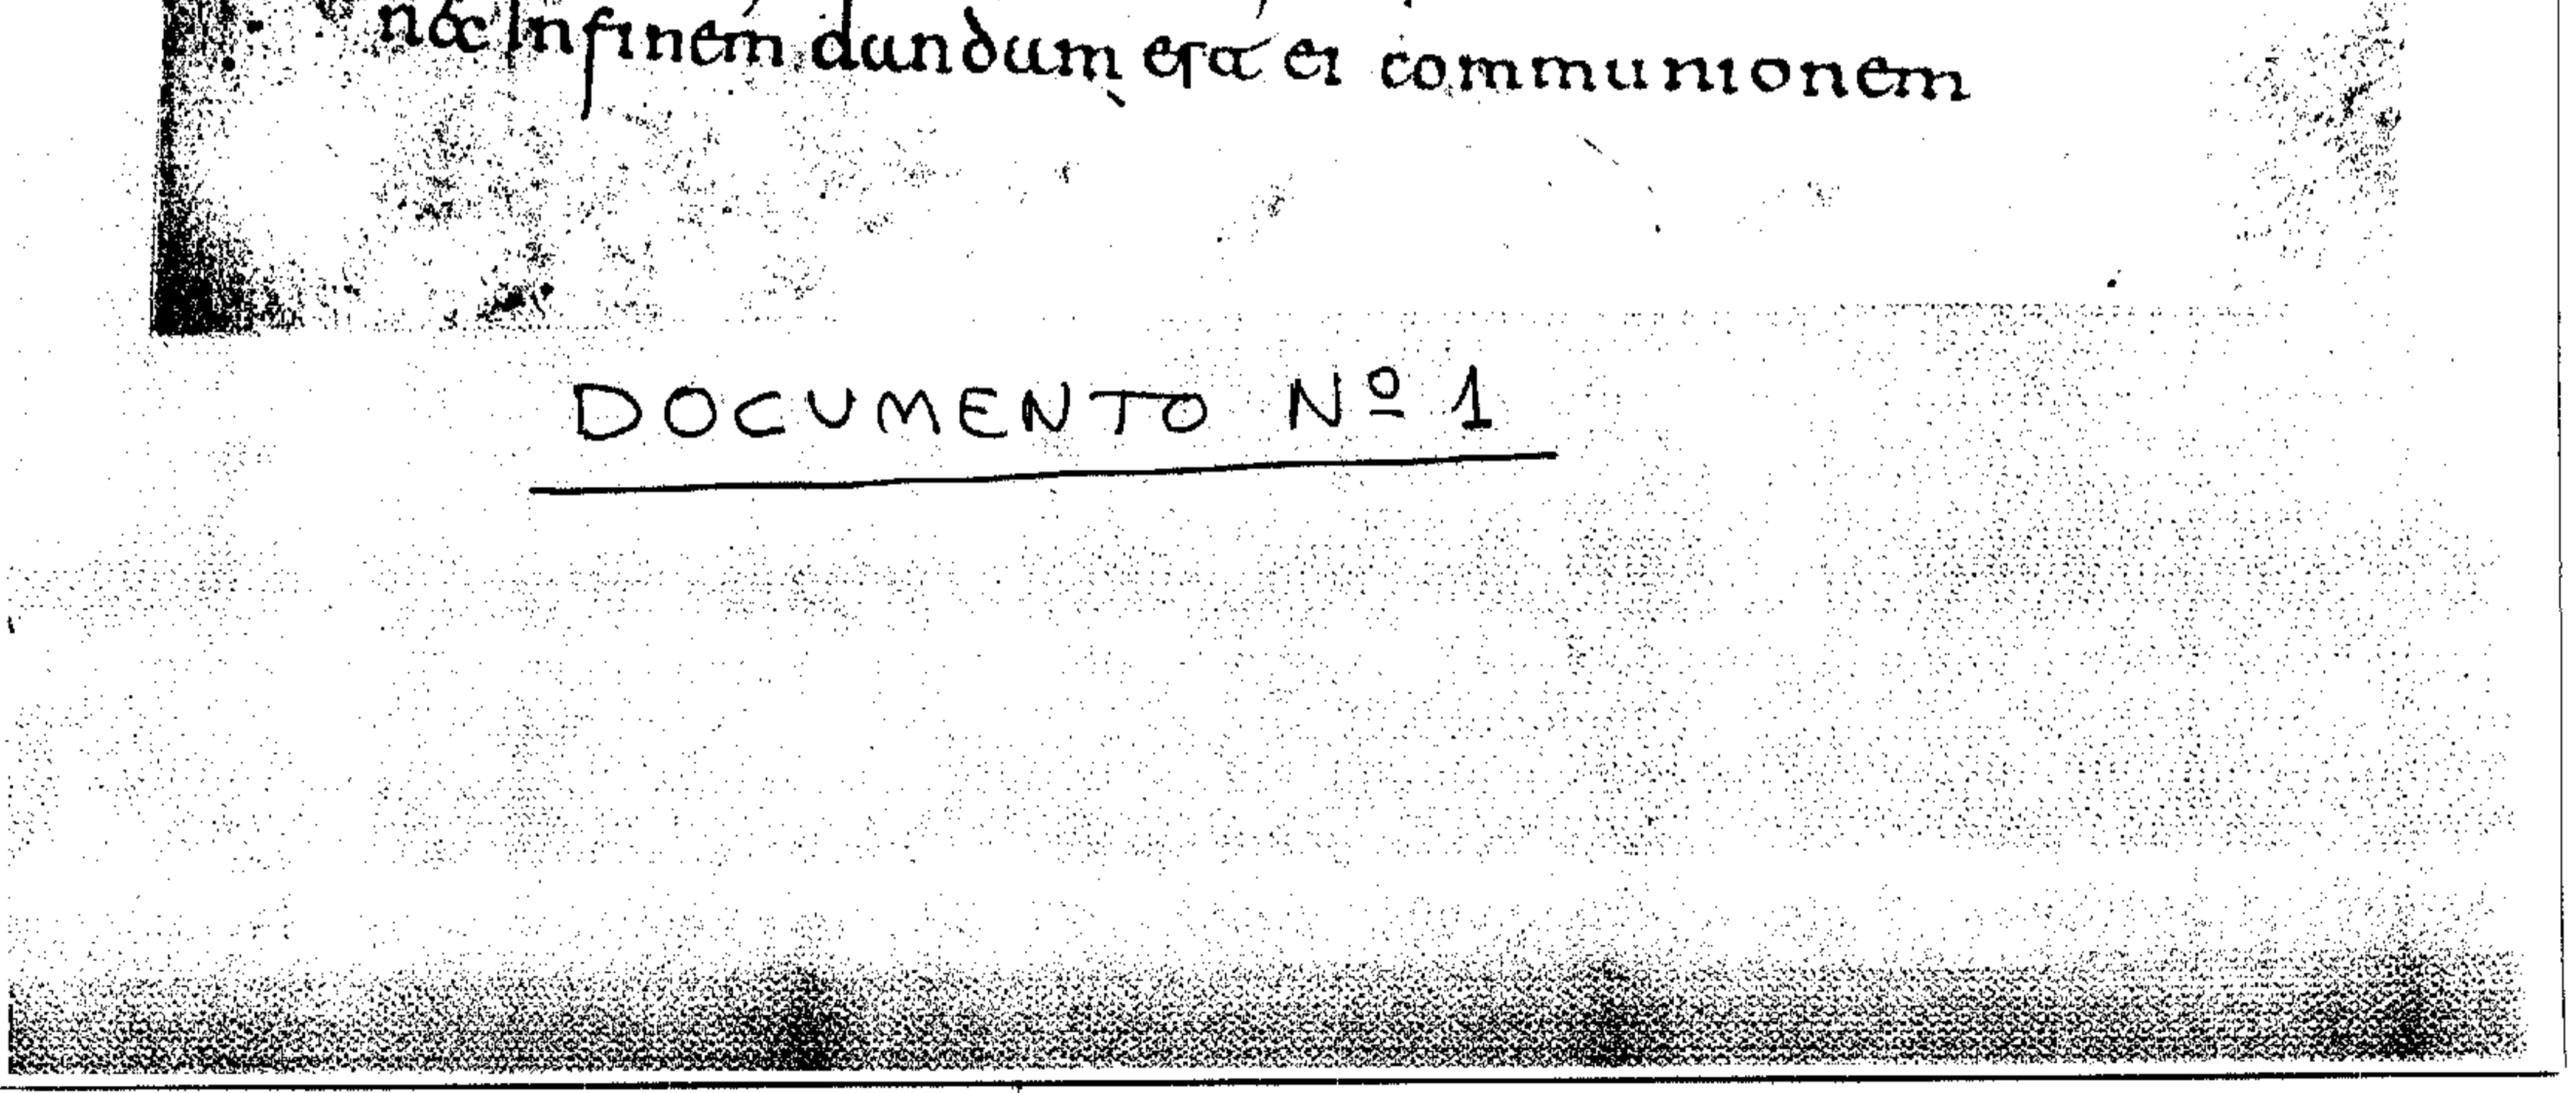 nec in finem dandum esse ei communionem
DOCUMENTO Nº 1